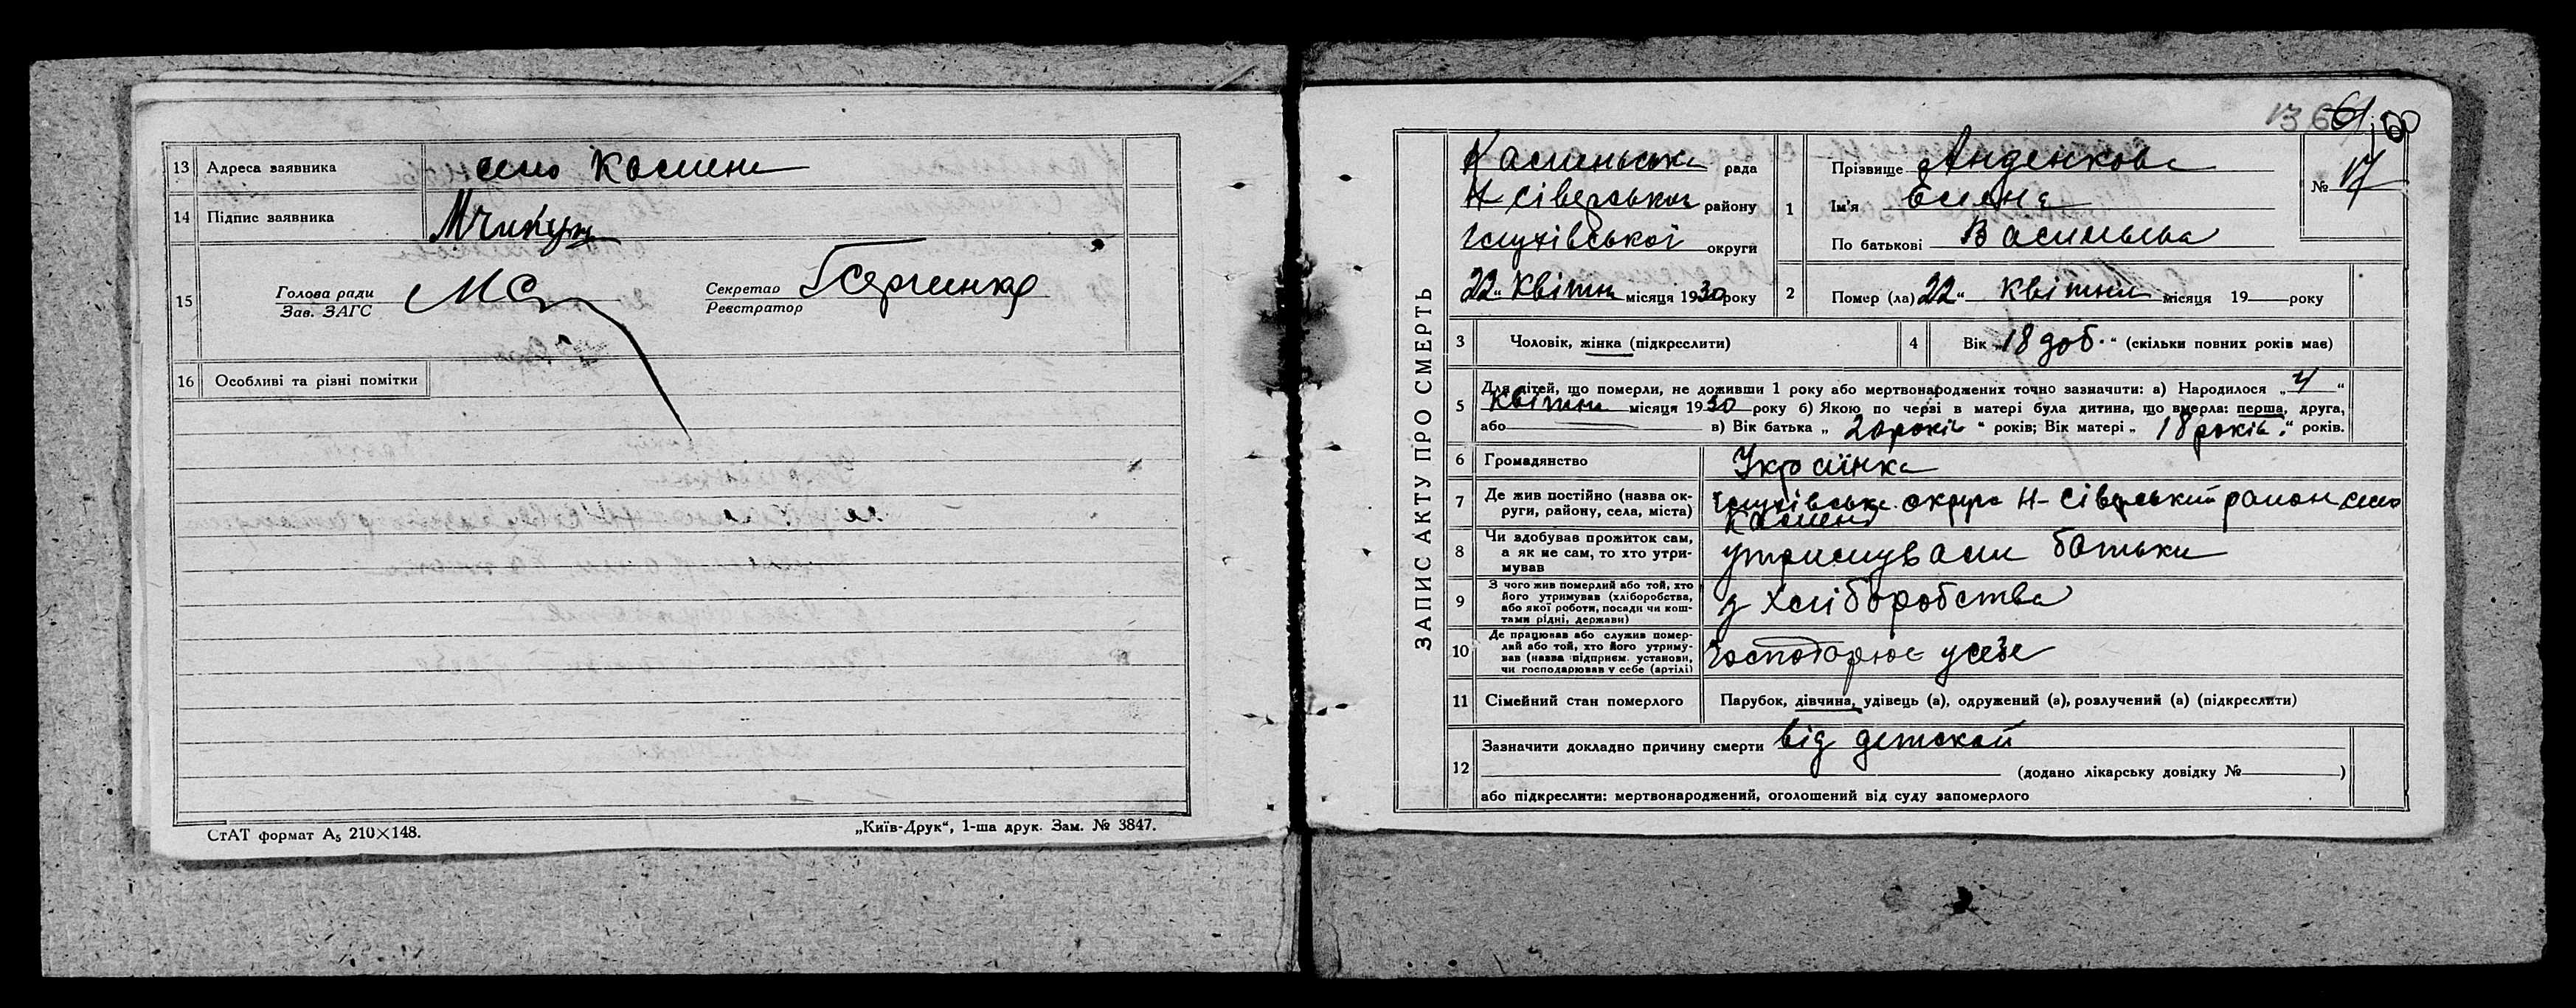 13 Адреса заявника село Камень
14 Підпис заявника
15 Голова ради
Зав. ЗАГС
Секретар
Реєстратор
16 Особливі та різні помітки
СтАТ формат А5 210×148.
„Київ-Друк“, 1-ша друк. Зам. № 3847.
60
ЗАПИС АКТУ ПРО СМЕРТЬ
Каменьська рада
Н Сіверського району
Глухівської округи
22 „ Квітня місяця 1930 року
1 Прізвище Анденкова
Ім'я Елена
По батькові Васильева
№ 17
2 Помер (ла) 22 “ Квітня місяця 19 року
3 Чоловік, жінка (підкреслити)
4 Вік „18 доб.“ (скільки повних років має)
5 Для дітей, що померли, не доживши 1 року або мертвонароджених точно зазначити: а) Народилося „ 4 “
Квітня місяця 1930 року б) Якою по черзі в матері була дитина, що вмерла: перша, друга,
або в) Вік батька „ 20 років “ років; Вік матері „ 18 років. “ років.
6 Громадянство Українка
7 Де жив постійно (назва ок-
руги, району, села, міста) Глухівська округа Н-Сіверський район село
Камень
8 Чи здобував прожиток сам,
а як не сам, то хто утри-
мував утримували батьки
9 З чого жив померлий або той, хто
його утримував (хліборобства,
або якої роботи, посади чи кош-
тами рідні, держави) з хліборобства
10 Де працював або служив помер-
лий або той, хто його утриму-
вав (назва підприєм. установи,
чи господарював у себе (артілі) Господарює у себе
11 Сімейний стан померлого Парубок, дівчина, удівець (а), одружений (а), розлучений (а) (підкреслити)
12 Зазначити докладно причину смерти від детской
(додано лікарську довідку № )
або підкреслити: мертвонароджений, оголошений від суду запомерлого